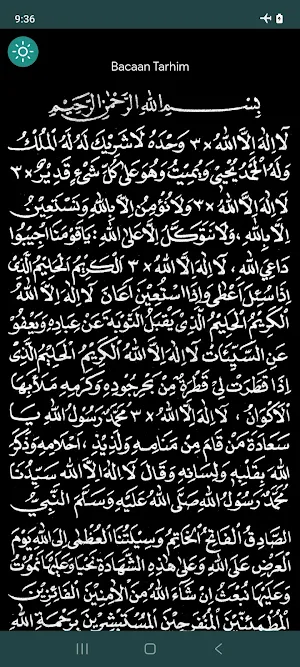 9:36
Bacaan Tarhim
بِسْمِ اللهِ الرَّحْمٰنِ الرَّحِيْمِ
لَا اِلٰهَ اِلَّا اللهُ ×٣ وَحْدَهُ لَا شَرِيْكَ لَهُ لَهُ الْمُلْكُ
وَلَهُ الْحَمْدُ يُحْيِيْ وَيُمِيْتُ وَهُوَ عَلٰى كُلِّ شَيْءٍ قَدِيْرٌ ×٣
لَا اِلٰهَ اِلَّا اللهُ ×٣ وَلَا نُؤْمِنُ اِلَّا بِاللهِ وَنَسْتَعِيْنُ
اِلَّا بِاللهِ ، وَلَا نَتَوَكَّلُ اِلَّا عَلَى اللهِ : يَا قَوْمَنَا اَجِيْبُوْا
دَاعِيَ اللهِ ، لَا اِلٰهَ اِلَّا اللهُ ×٣ اَلْكَرِيْمُ الْحَلِيْمُ الَّذِيْ
اِذَا سُئِلَ اَعْطٰى وَاِذَا اسْتُعِيْنَ اَعَانَ لَا اِلٰهَ اِلَّا اللهُ
الْكَرِيْمُ الْحَلِيْمُ الَّذِيْ يَقْبَلُ التَّوْبَةَ عَنْ عِبَادِهِ وَيَعْفُوْ
عَنِ السَّيِّئَاتِ لَا اِلٰهَ اِلَّا اللهُ الْكَرِيْمُ الْحَلِيْمُ الَّذِيْ
اِذَا قَطَرَتْ لِيْ قَطْرَةٌ مِنْ بَحْرِ جُوْدِهِ وَكَرَمِهِ مَلَأَ بِهَا
الْاَكْوَانُ ، لَا اِلٰهَ اِلَّا اللهُ ×٣ مُحَمَّدٌ رَسُوْلُ اللهِ يَا
سَعَادَةَ مَنْ قَامَ مِنْ مَنَامِهِ وَلَذِيْذِ ، اَحْلَامِهِ وَذَكَرَ
اللهَ بِقَلْبِهِ وَلِسَانِهِ وَقَالَ لَا اِلٰهَ اِلَّا اللهُ سَيِّدُنَا
مُحَمَّدٌ رَسُوْلُ اللهِ صَلَّى اللهُ عَلَيْهِ وَسَلَّمَ النَّبِيُّ
الصَّادِقُ الْفَاتِحُ الْخَاتِمُ وَسِيْلَتُنَا الْعُظْمٰى اِلَى اللهِ يَوْمَ
الْعَرْضِ عَلَى اللهِ وَعَلٰى هٰذِهِ الشَّهَادَةِ نَحْيَا وَعَلَيْهَا نَمُوْتُ
وَعَلَيْهَا نُبْعَثُ اِنْ شَاءَ اللهُ مِنَ الْاٰمِنِيْنَ الْفَائِزِيْنَ
الْمُطْمَئِنِّيْنَ الْمُفْرَحِيْنَ الْمُسْتَبْشِرِيْنَ بِرَحْمَةِ اللهِ